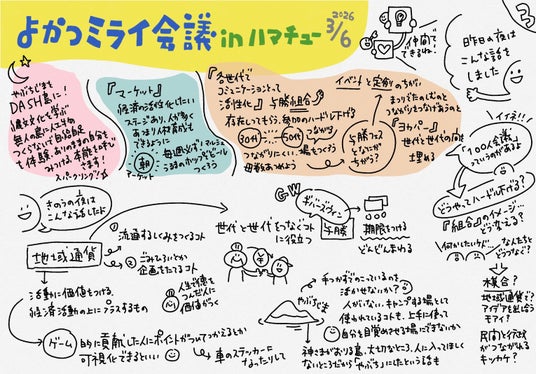 よかつミライ会議 in ハマチュー 2026 3/6
やぶちじまを
DASH島に!!
縄文文化を学ぶ
無人の島に人工物
つくらないで自給自足
体験、ありのまま自分を
みつけ、本能をよび
さます!
『マーケット』
経済の活性化したい
ステージあり、人が多く
あつまり、教育なども
できるように
朝
マーケット
『各世代で
コミュニケーションとって
活性化』与勝組合
存在してもらう、参加のハードル下げる
30代
60代
つながる
つながりにくい、場をつくろう
イベントと定例のちがい
与勝フェス
となにが
ちがう?
まつりだとたのしむのと
つながりをつなげようとの
『ヨカバー』
世代と世代の間を
埋める
仲間で
できるね!
昨日の夜は
こんな話を
しました
3
イイネ!!
『100人会議』
っていうのがあるよ
どうやってハードル下げる?
『組合』のイメージ…
どう変える?
何かしたいけど…
なんの人たちと
どうつなぐ?
模合?
地域通貨で?
アイデアを出し合う
モアイ!
民間と行政
がつながれる
キッカケ?
きのうの夜は
こんな話したよ
地域通貨
① 流通するしくみをつくるコト
② ごみひろいとか
企画をたてるコト
活動に価値をつける
経済活動の上にプラスするもの
人生で徳を
つんだ人に
価値がつく
ゲーム的に貢献した人にポイントがついてつかえるとか
可視化できるといい
車のステッカーに
なったりして
世代と世代をつなぐコト
に役立つ
GW
ギバーズゲイン
与勝
期限をつける
どんどんまわる
やぶちじま
手つかずでのこっているのを
活かせないか?
人がいない、キャンプする場として
使われているコトを、上手に使って
自分を目覚めさせる場にできないか
神さまがおりる島、大切なところ、人に入ってほしく
ないところだから「やぶち」にしたという話も